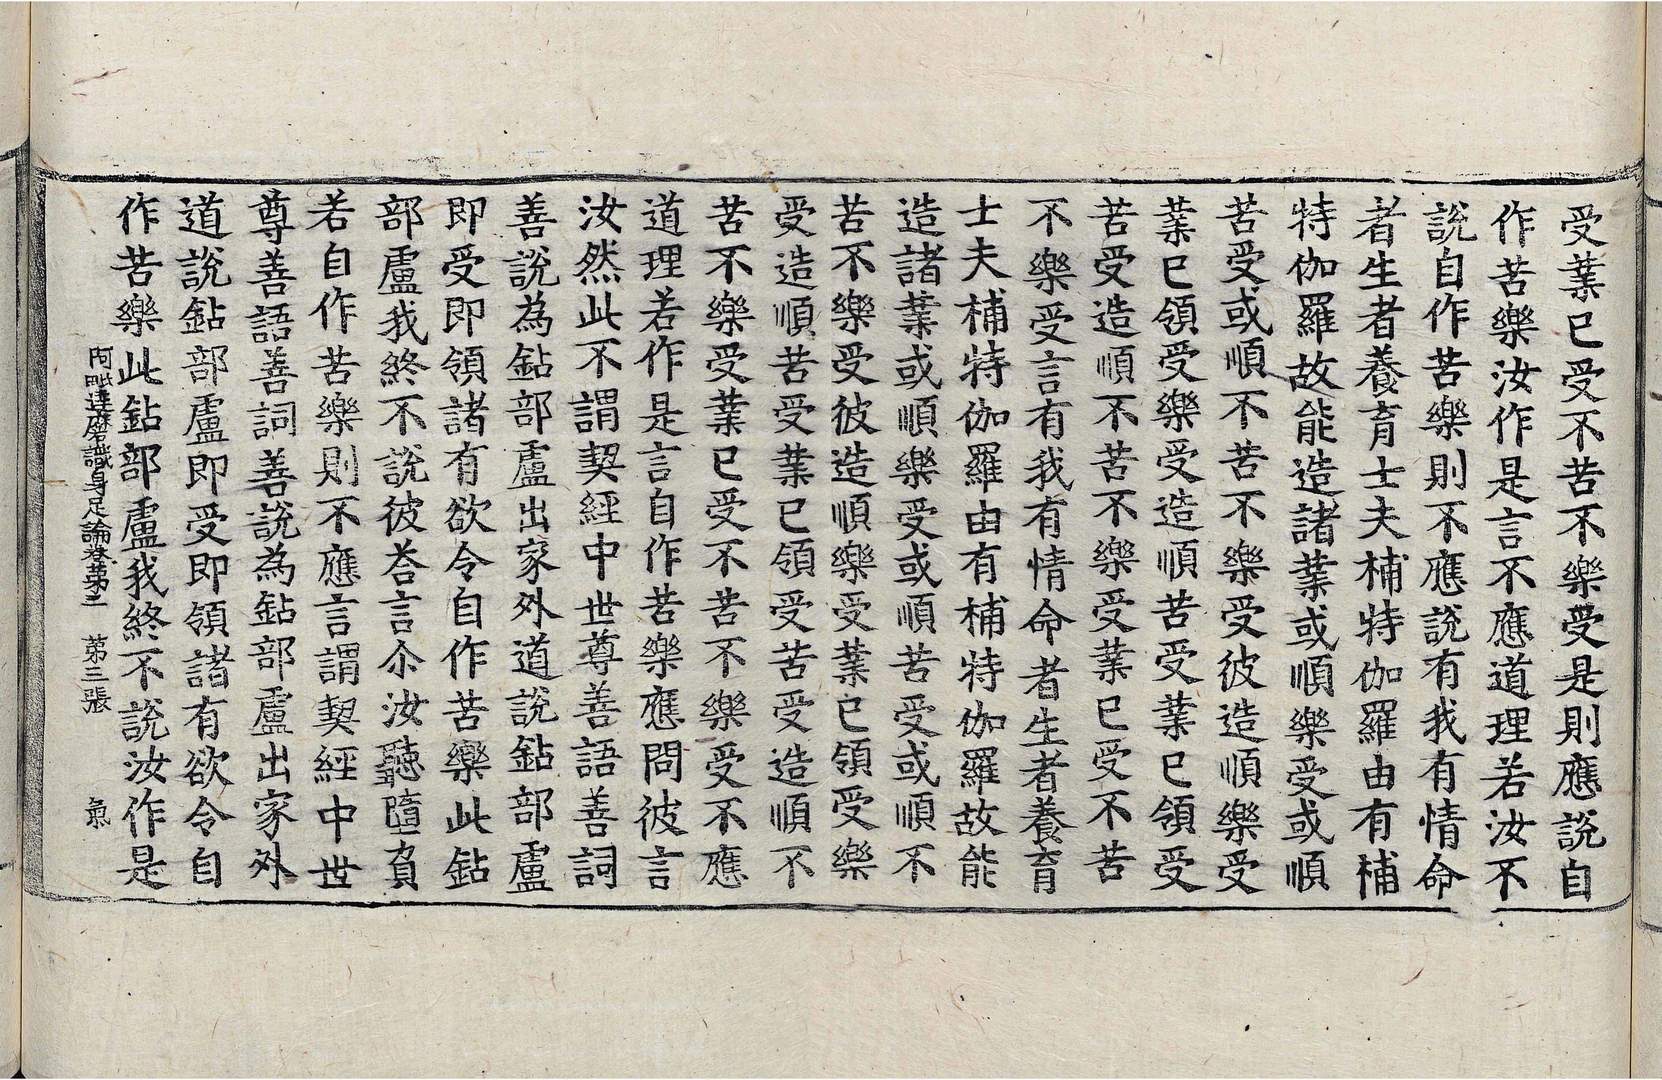 受業已受不苦不樂受是則應說自
作苦樂汝作是言不應道理若汝不
說自作苦樂則不應說有我有情命
者生者養育士夫補特伽羅由有補
特伽羅故能造諸業或順樂受或順
苦受或順不苦不樂受彼造順樂受
業已領受樂受造順苦受業已領受
苦受造順不苦不樂受業已受不苦
不樂受言有我有情命者生者養育
士夫補特伽羅由有補特伽羅故能
造諸業或順樂受或順苦受或順不
苦不樂受彼造順樂受業已領受樂
受造順苦受業已領受苦受造順不
苦不樂受業已受不苦不樂受不應
道理若作是言自作苦樂應問彼言
汝然此不謂契經中世尊善語善詞
善說為鉆部盧出家外道說鉆部盧
即受即領諸有欲令自作苦樂此鉆
部盧我終不說彼荅言尒汝聽墮負
若自作苦樂則不應言謂契經中世
尊善語善詞善說為鉆部盧出家外
道說鉆部盧即受即領諸有欲令自
作苦樂此鉆部盧我終不說汝作是
阿毗達磨識身足論卷第三 第三張